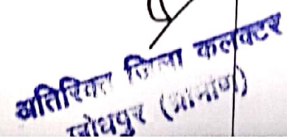 अतिरिक्त जिला कलक्टर
जोधपुर (ग्रामीण)